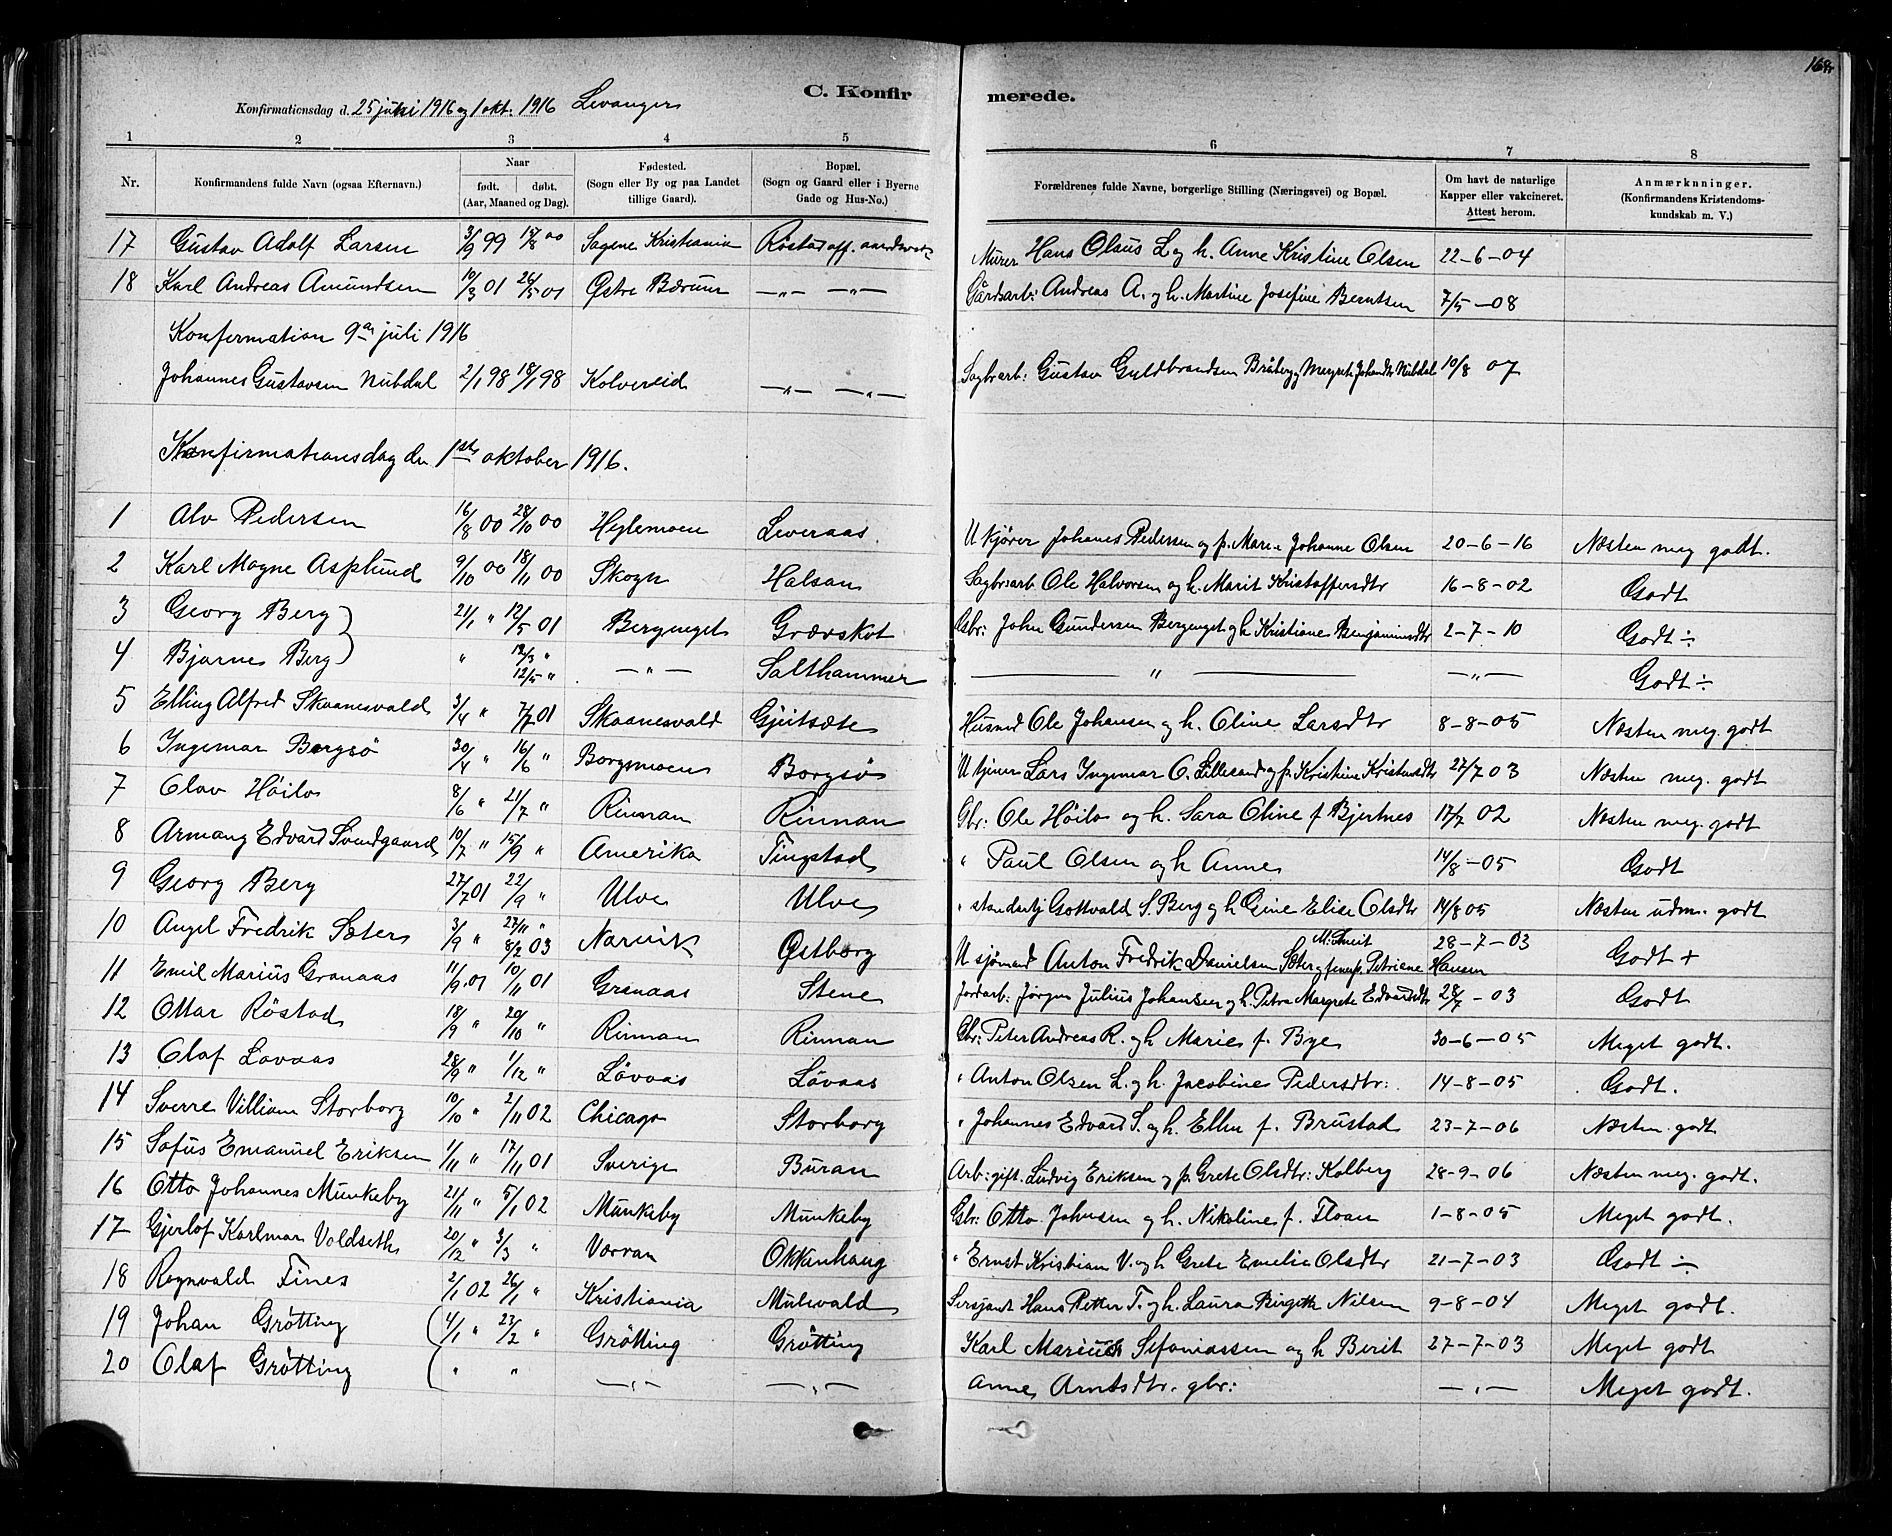 168
C. Konfirmerede.
Konfirmationsdag d. 25 juni 1916 og 1 okt. 1916 Levanger
1 2 3 4 5 6 7 8
Nr. Konfirmandens fulde Navn (ogsaa Efternavn.) Naar født. døbt. (Aar, Maaned og Dag). Fødested. (Sogn eller By og paa Landet tillige Gaard). Bopæl. (Sogn og Gaard eller i Byerne Gade og Hus-No.) Forældrenes fulde Navne, borgerlige Stilling (Næringsvei) og Bopæl. Om havt de naturlige Kapper eller vakcineret. Attest herom. Anmærknninger. (Konfirmandens Kristendomskundskab m. V.)
17 Gustav Adolf Larsen 3/9 99 Sagene Kristiania Røstad off. Murer Hans Olaus L og h. Anne Kristine Olsen 22-6-04
18 Karl Andreas Amundsen 10/3 01 26/5 01 Østre Bærum —„— —„— Gårdsarb: Andreas A. og h. Martine Josefine Berntsen 7/5-08
Konfirmation 9de juli 1916
Johannes Gustavsen Nubdal 2/1 98 18/1 98 Kolvereid —„— —„— Sagbrarb: Gustav Guldbrandsen Bråberg Nubdal 10/8 07
Konfirmationsdag den 1ste oktober 1916.
1 Alv Pedersen 16/8 00 28/10 00 Heglemoen Leveraas. U kjører Johanes Pedersen og p. Marie Johanne Olsen 20-6-16 Næsten meg godt.
2 Karl Magne Asplund 9/10 00 18/11 00 Skogn Halsan Sagbrarb Ole Halvorsen og h. Marit Kristoffersdtr 16-8-02 Godt
3 Georg Berg) 21/1 „ 12/5 01 Bergenget Grævskot Gbr: John Gundersen Bergenget og h Kristiane Benjaminsdtr 2-7-10 Godt ÷
4 Bjarne Berg) „ 12/3 „ 12/5 „ —„— Salthammer —„— —„— Godt ÷
5 Elling Alfred Skaanesvald 3/4 „ 7/7 01 Skaanesvald Gjeitsæte Husmd Ole Johansen og h. Oline Larsdtr 8-8-05 Næsten meg. godt
6 Ingemar Borgsö 30/4 „ 16/6 „ Borgsmoen Borgsö U tjener Lars Ingemar O. Lillesand og p. Kristine Kristensdtr 27/7 03 Næsten meg. godt
7 Olav Höilo 8/6 „ 21/7 „ Rinnan Rinnan Gbr: Ole Höilo og h. Sara Oline f Bjertnes 17/7 02 Næsten meg. godt
8 Armang Edvard Svendgaard 10/7 „ 15/9 „ Amerika Tingstad „ Paul Olsen og h Anne 14/8-05 Godt
9 Georg Berg 27/7 01 22/9 „ Ulve Ulve „ standsertj Gottvald S. Berg og h Gine Elise Olsdtr 14/8 05 Næsten udm. godt
10 Angel Fredrik Sæter 3/9 „ 27/11 „ 8/2 03 Narvik Østborg U sjömand Anton Fredrik Danielsen Sæter Petriene Hansen 28-7-03 Godt +
11 Emil Marius Granaas 11/9.01 10/11 01 Granaas Stene Jordarb: Jørgen Julius Johansen og h. Petra Margrete Edvardsdtr 28/7-03 Godt
12 Ottar Röstad 18/9 „ 20/10 „ Rinnan Rinnan Gbr: Peter Andreas R. og h Marie f. Bye 30-6-05 Meget godt.
13 Olaf Lövaas 28/9 „ 1/12 „ Lövaas Lövaas „ Anton Olsen L. og h. Jacobine Pedersdtr: 14-8-05 Godt.
14 Sverre Villiam Storborg 10/10 „ 2/11 02 Chicago Storborg „ Johannes Edvard S. og h. Ellen f. Brustad 23-7-06 Næsten godt
15 Sofus Emanuel Eriksen 1/11 „ 17/11 01 Sverige Buran Arb: gift. Ludvig Eriksen og p. Grete Olsdtr: Kolberg 28-9-06 Næsten meg. godt.
16 Otto Johannes Munkeby 21/11 „ 5/1 02 Munkeby Munkeby Gbr: Otto Johnsen og h. Nikoline f. Floan 1-8-05 Meget godt.
17 Gjerlof Karlmar Voldseth 20/12 „ 3/3 „ Værran Okkenhaug „ Ernst Kristian V. og h Grete Emelie Olsdtr 21-7-03 Godt ÷
18 Reginvald Fines 2/1 02 26/1 „ Kristiania Mulevald Sersjant Hans Petter F. og h. Laura Birgitte Nilsen 9-8-04 Meget godt.
19 Johan Grötting (4/1 „ 23/2 „ Grötting Grötting Karl Marius Sefaniassen og h Berit 27-7-03 Meget godt
20 Olaf Grötting ( „ „ —„— —„— Anne Arntsdtr. gbr: —„— Meget godt.